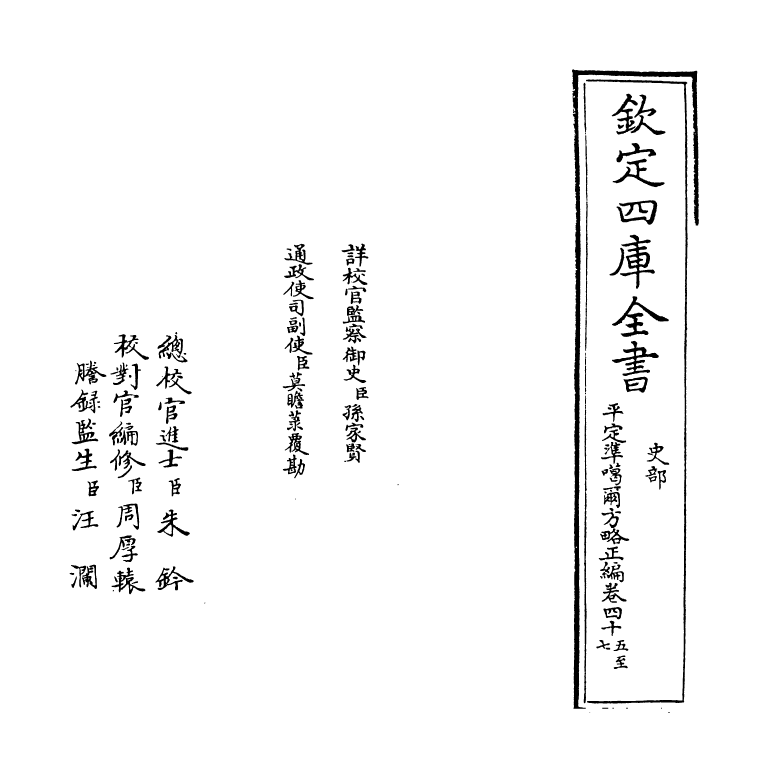 欽定四庫全書
史部
平定準噶爾方略正編卷四十五至七
詳校官監察御史臣孫家賢
通政使司副使臣莫瞻菉覆勘
總校官進士臣朱鈐
校對官編修臣周厚轅
謄錄監生臣汪瀾